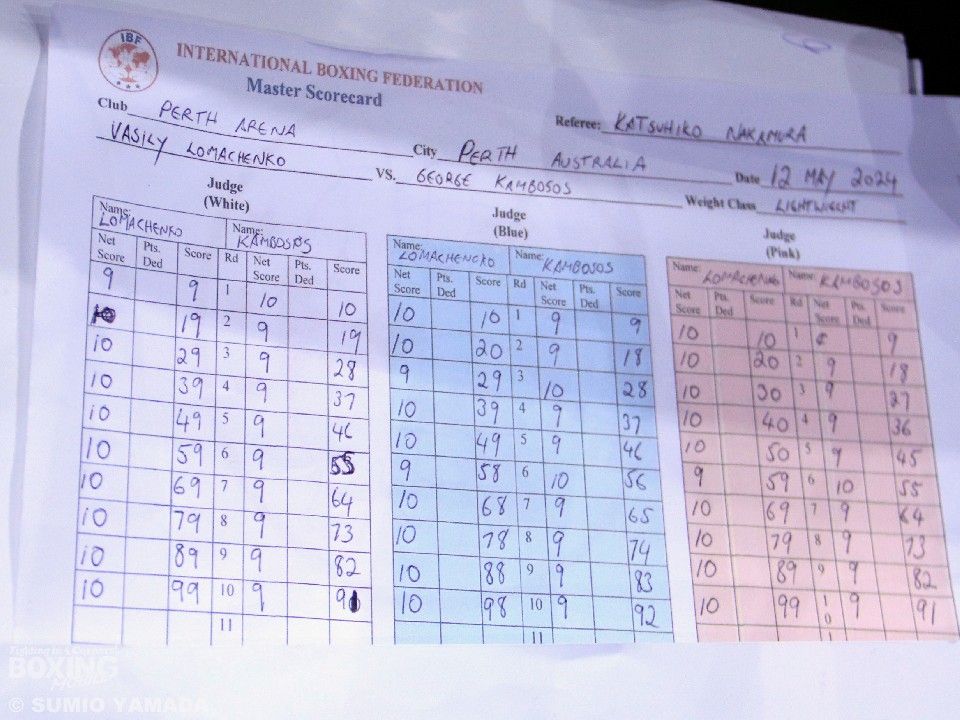 IBF
INTERNATIONAL BOXING FEDERATION
Master Scorecard
Club PERTH ARENA City PERTH AUSTRALIA Referee: KATSUHIKO NAKAMURA
VASILY LOMACHENKO VS. GEORGE KAMBOSOS Date 12 MAY 2024
Weight Class LIGHTWEIGHT
Judge (White)
Name: LOMACHENKO Name: KAMBOSOS
Net Score Pts. Ded Score Rd Net Score Pts. Ded Score
9 9 1 10 10
10 19 2 9 19
10 29 3 9 28
10 39 4 9 37
10 49 5 9 46
10 59 6 9 55
10 69 7 9 64
10 79 8 9 73
10 89 9 9 82
10 99 10 9 91
11
Judge (Blue)
Name: LOMACHENCKO Name: KAMBOSOS
Net Score Pts. Ded Score Rd Net Score Pts. Ded Score
10 10 1 9 9
10 20 2 9 18
9 29 3 10 28
10 39 4 9 37
10 49 5 9 46
9 58 6 10 56
10 68 7 9 65
10 78 8 9 74
10 88 9 9 83
10 98 10 9 92
11
Judge (Pink)
Name: LOMACHENKO Name: KAMBOSOS
Net Score Pts. Ded Score Rd Net Score Pts. Ded Score
10 10 1 9
10 20 2 9 18
10 30 3 9 27
10 40 4 9 36
10 50 5 9 45
9 59 6 10 55
10 69 7 9 64
10 79 8 9 73
10 89 9 9 82
10 99 10 9 91
BOXING
© SUMIO YAMADA